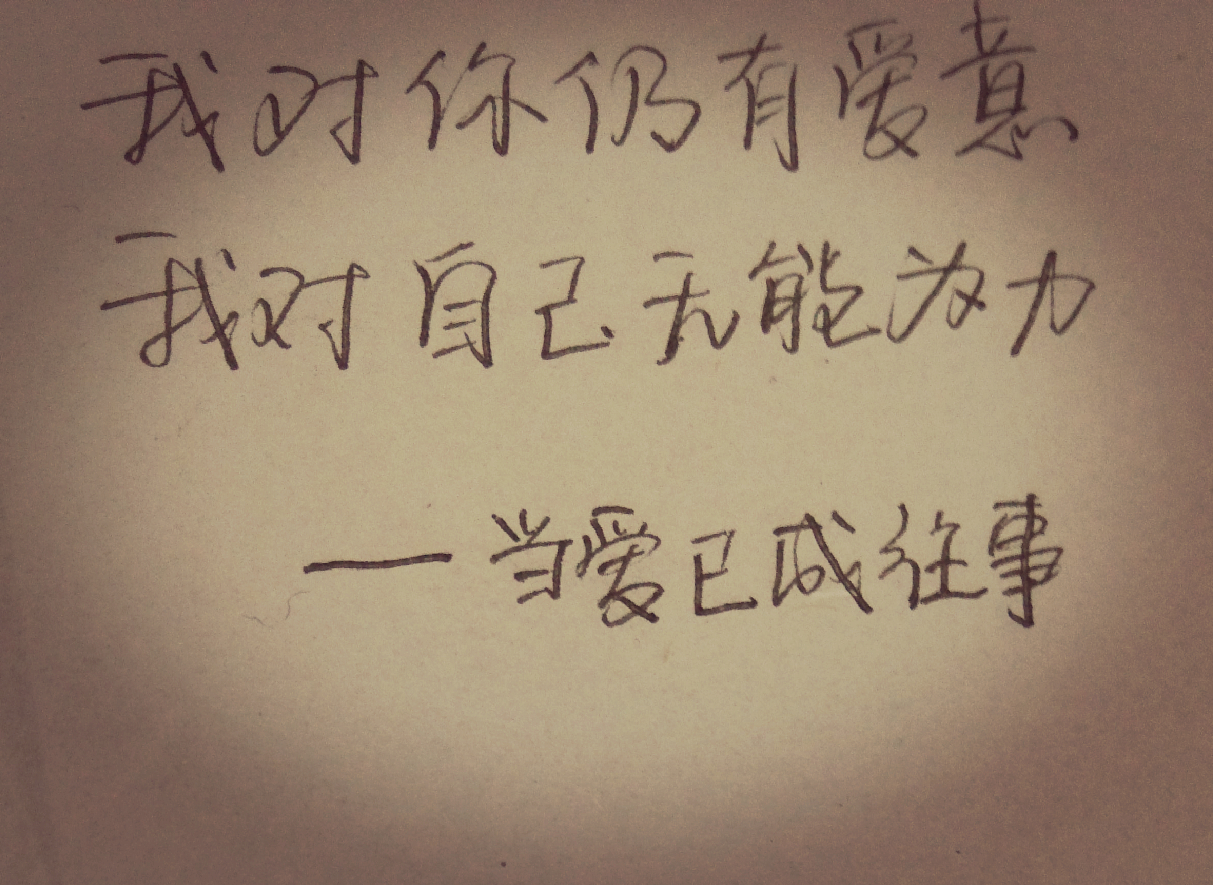 我对你仍有爱意
我对自己无能为力
—当爱已成往事